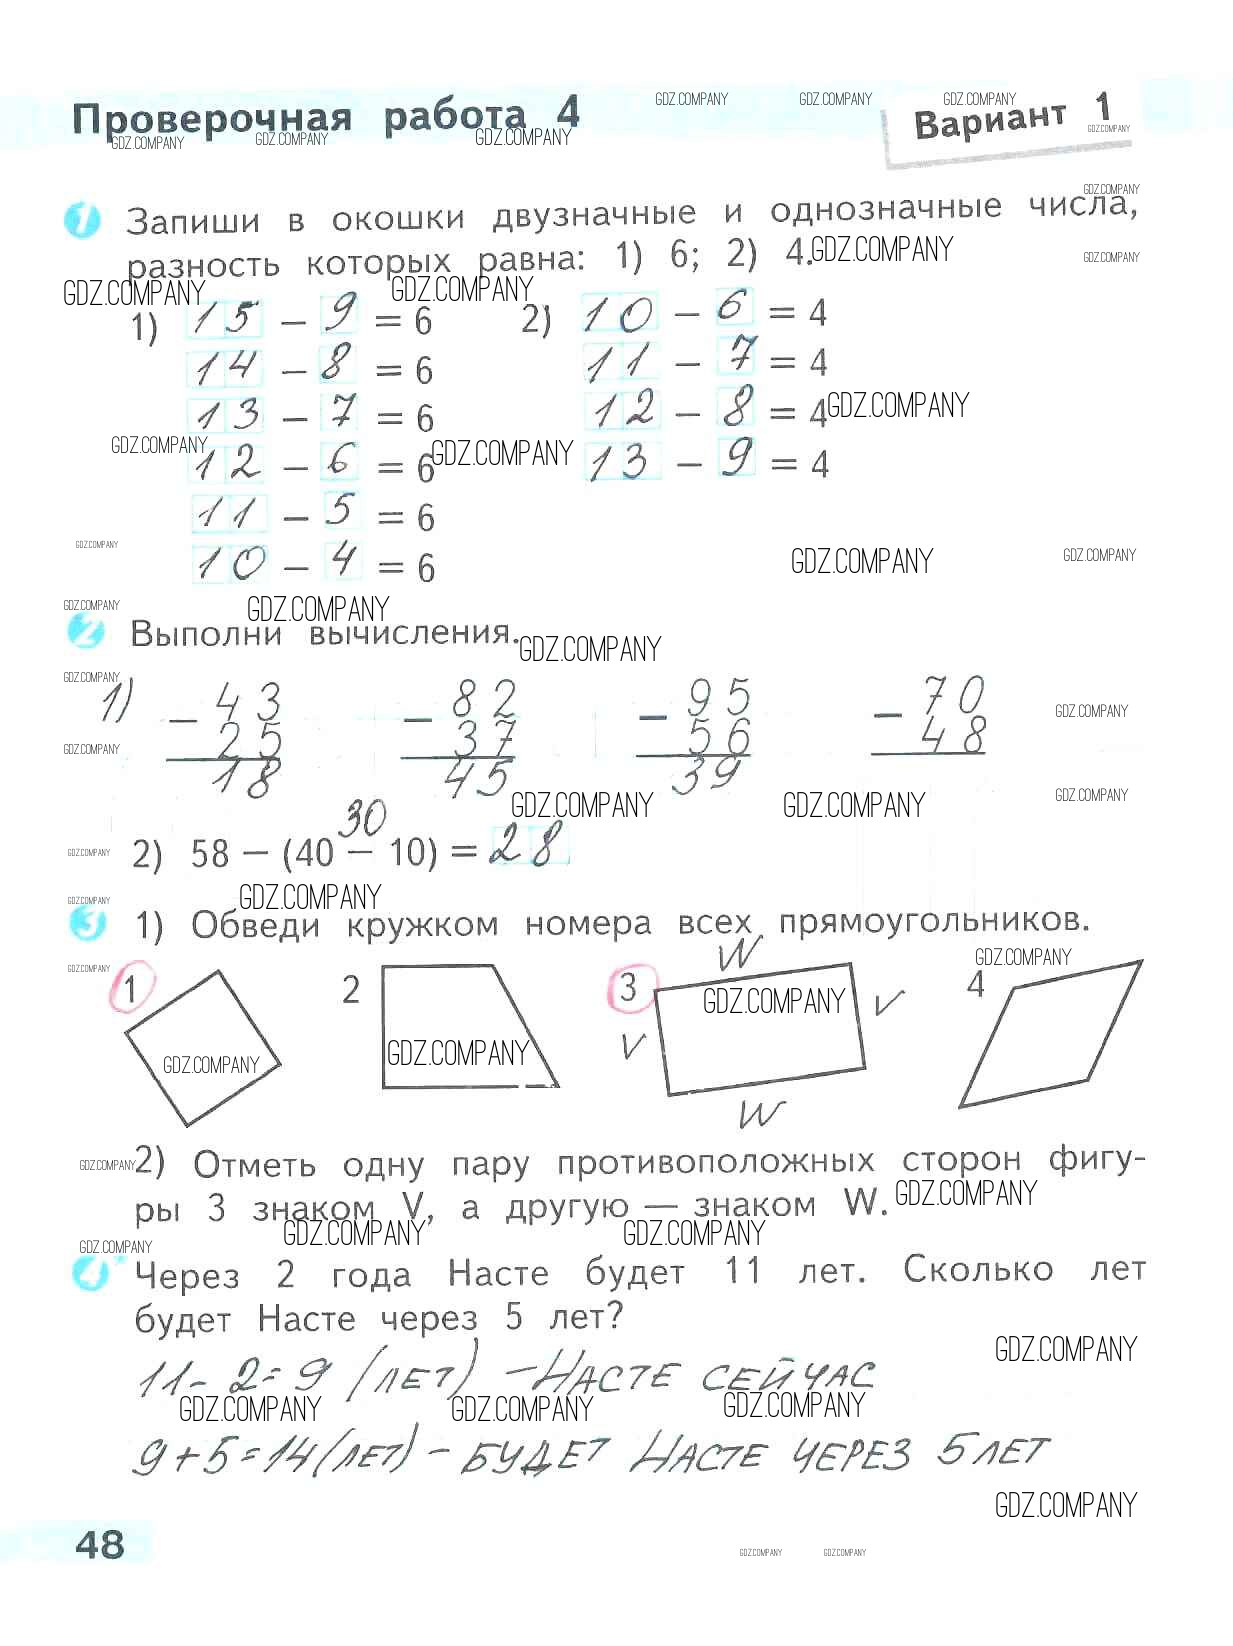 Проверочная работа 4
Вариант 1
1 Запиши в окошки двузначные и однозначные числа,
разность которых равна: 1) 6; 2) 4.
1) 15 – 9 = 6 2) 10 – 6 = 4
14 – 8 = 6 11 – 7 = 4
13 – 7 = 6 12 – 8 = 4
12 – 6 = 6 13 – 9 = 4
11 – 5 = 6
10 – 4 = 6
2 Выполни вычисления.
1) – 43 – 82 – 95 – 70
25 37 56 48
18 45 39
30
2) 58 – (40 – 10) = 28
3 1) Обведи кружком номера всех прямоугольников.
W
1 2 3 4
V V
W
2) Отметь одну пару противоположных сторон фигу-
ры 3 знаком V, а другую — знаком W.
4* Через 2 года Насте будет 11 лет. Сколько лет
будет Насте через 5 лет?
11 - 2 = 9 (лет) – НАСТЕ СЕЙЧАС
9 + 5 = 14 (лет) – БУДЕТ НАСТЕ ЧЕРЕЗ 5 ЛЕТ
48
GDZ.COMPANY